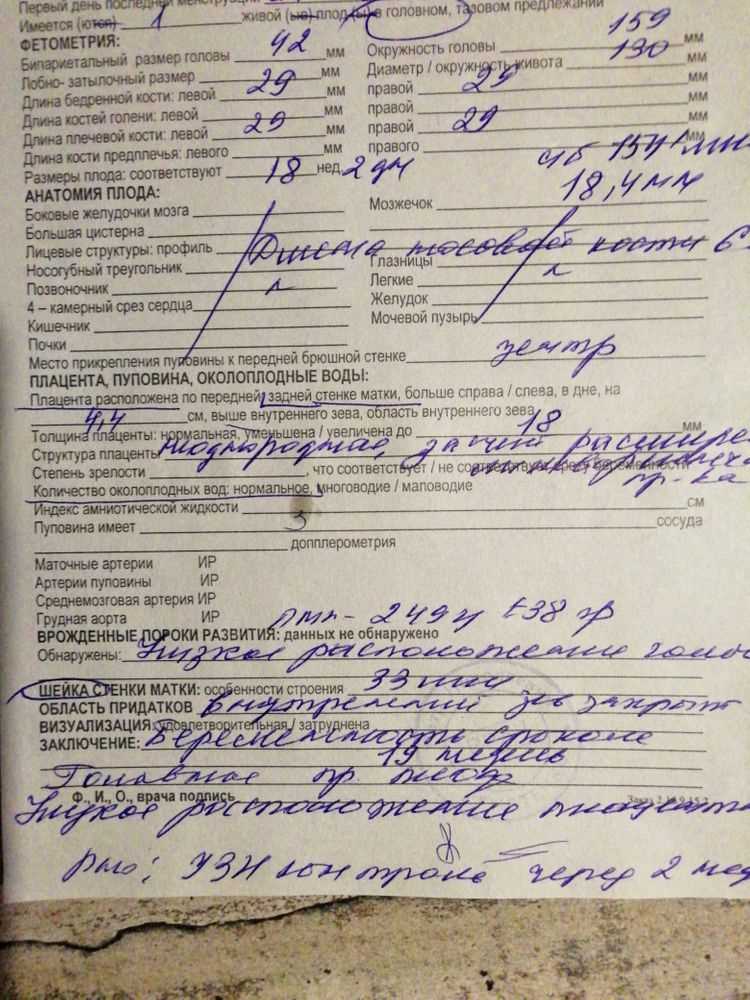 Первый день последней менструации
Имеется (ются) 1 живой (ые) плод (ы) в головном, тазовом предлежании
ФЕТОМЕТРИЯ:
Бипариетальный размер головы 42 мм Окружность головы 159 мм
Лобно- затылочный размер мм Диаметр / окружность живота 130 мм
Длина бедренной кости: левой 29 мм правой 29 мм
Длина костей голени: левой мм правой мм
Длина плечевой кости: левой 29 мм правой 29 мм
Длина кости предплечья: левого мм правого мм
Размеры плода: соответствуют 18 нед. 2 дн чб 154 мин
АНАТОМИЯ ПЛОДА: 18,4 мм
Боковые желудочки мозга Мозжечок
Большая цистерна
Лицевые структуры: профиль Длина носовой кости 6
Носогубный треугольник Глазницы
Позвоночник Легкие
4 – камерный срез сердца Желудок
Кишечник Мочевой пузырь
Почки
Место прикрепления пуповины к передней брюшной стенке центр
ПЛАЦЕНТА, ПУПОВИНА, ОКОЛОПЛОДНЫЕ ВОДЫ:
Плацента расположена по передней, задней стенке матки, больше справа / слева, в дне, на
4,4 см, выше внутреннего зева, область внутреннего зева
Толщина плаценты: нормальная, уменьшена / увеличена до 18 мм
Структура плаценты неоднородная, за счет расшире
Степень зрелости , что соответствует / не соответствует сроку беременности пр-ка
Количество околоплодных вод: нормальное, многоводие / маловодие
Индекс амниотической жидкости см
Пуповина имеет 3 сосуда
допплерометрия
Маточные артерии ИР
Артерии пуповины ИР
Среднемозговая артерия ИР
Грудная аорта ИР пмп - 249 гр ±38 гр
ВРОЖДЕННЫЕ ПОРОКИ РАЗВИТИЯ: данных не обнаружено
Обнаружены: Низкое расположение
ШЕЙКА СТЕНКИ МАТКИ: особенности строения 33 мм
ОБЛАСТЬ ПРИДАТКОВ внутренний зев закрыт
ВИЗУАЛИЗАЦИЯ: удовлетворительная / затруднена
ЗАКЛЮЧЕНИЕ: Беременность сроком
19 недель
Головное пр. плода
Ф., И., О., врача подпись
Низкое расположение плацента
Рек: УЗИ контроль через 2 нед